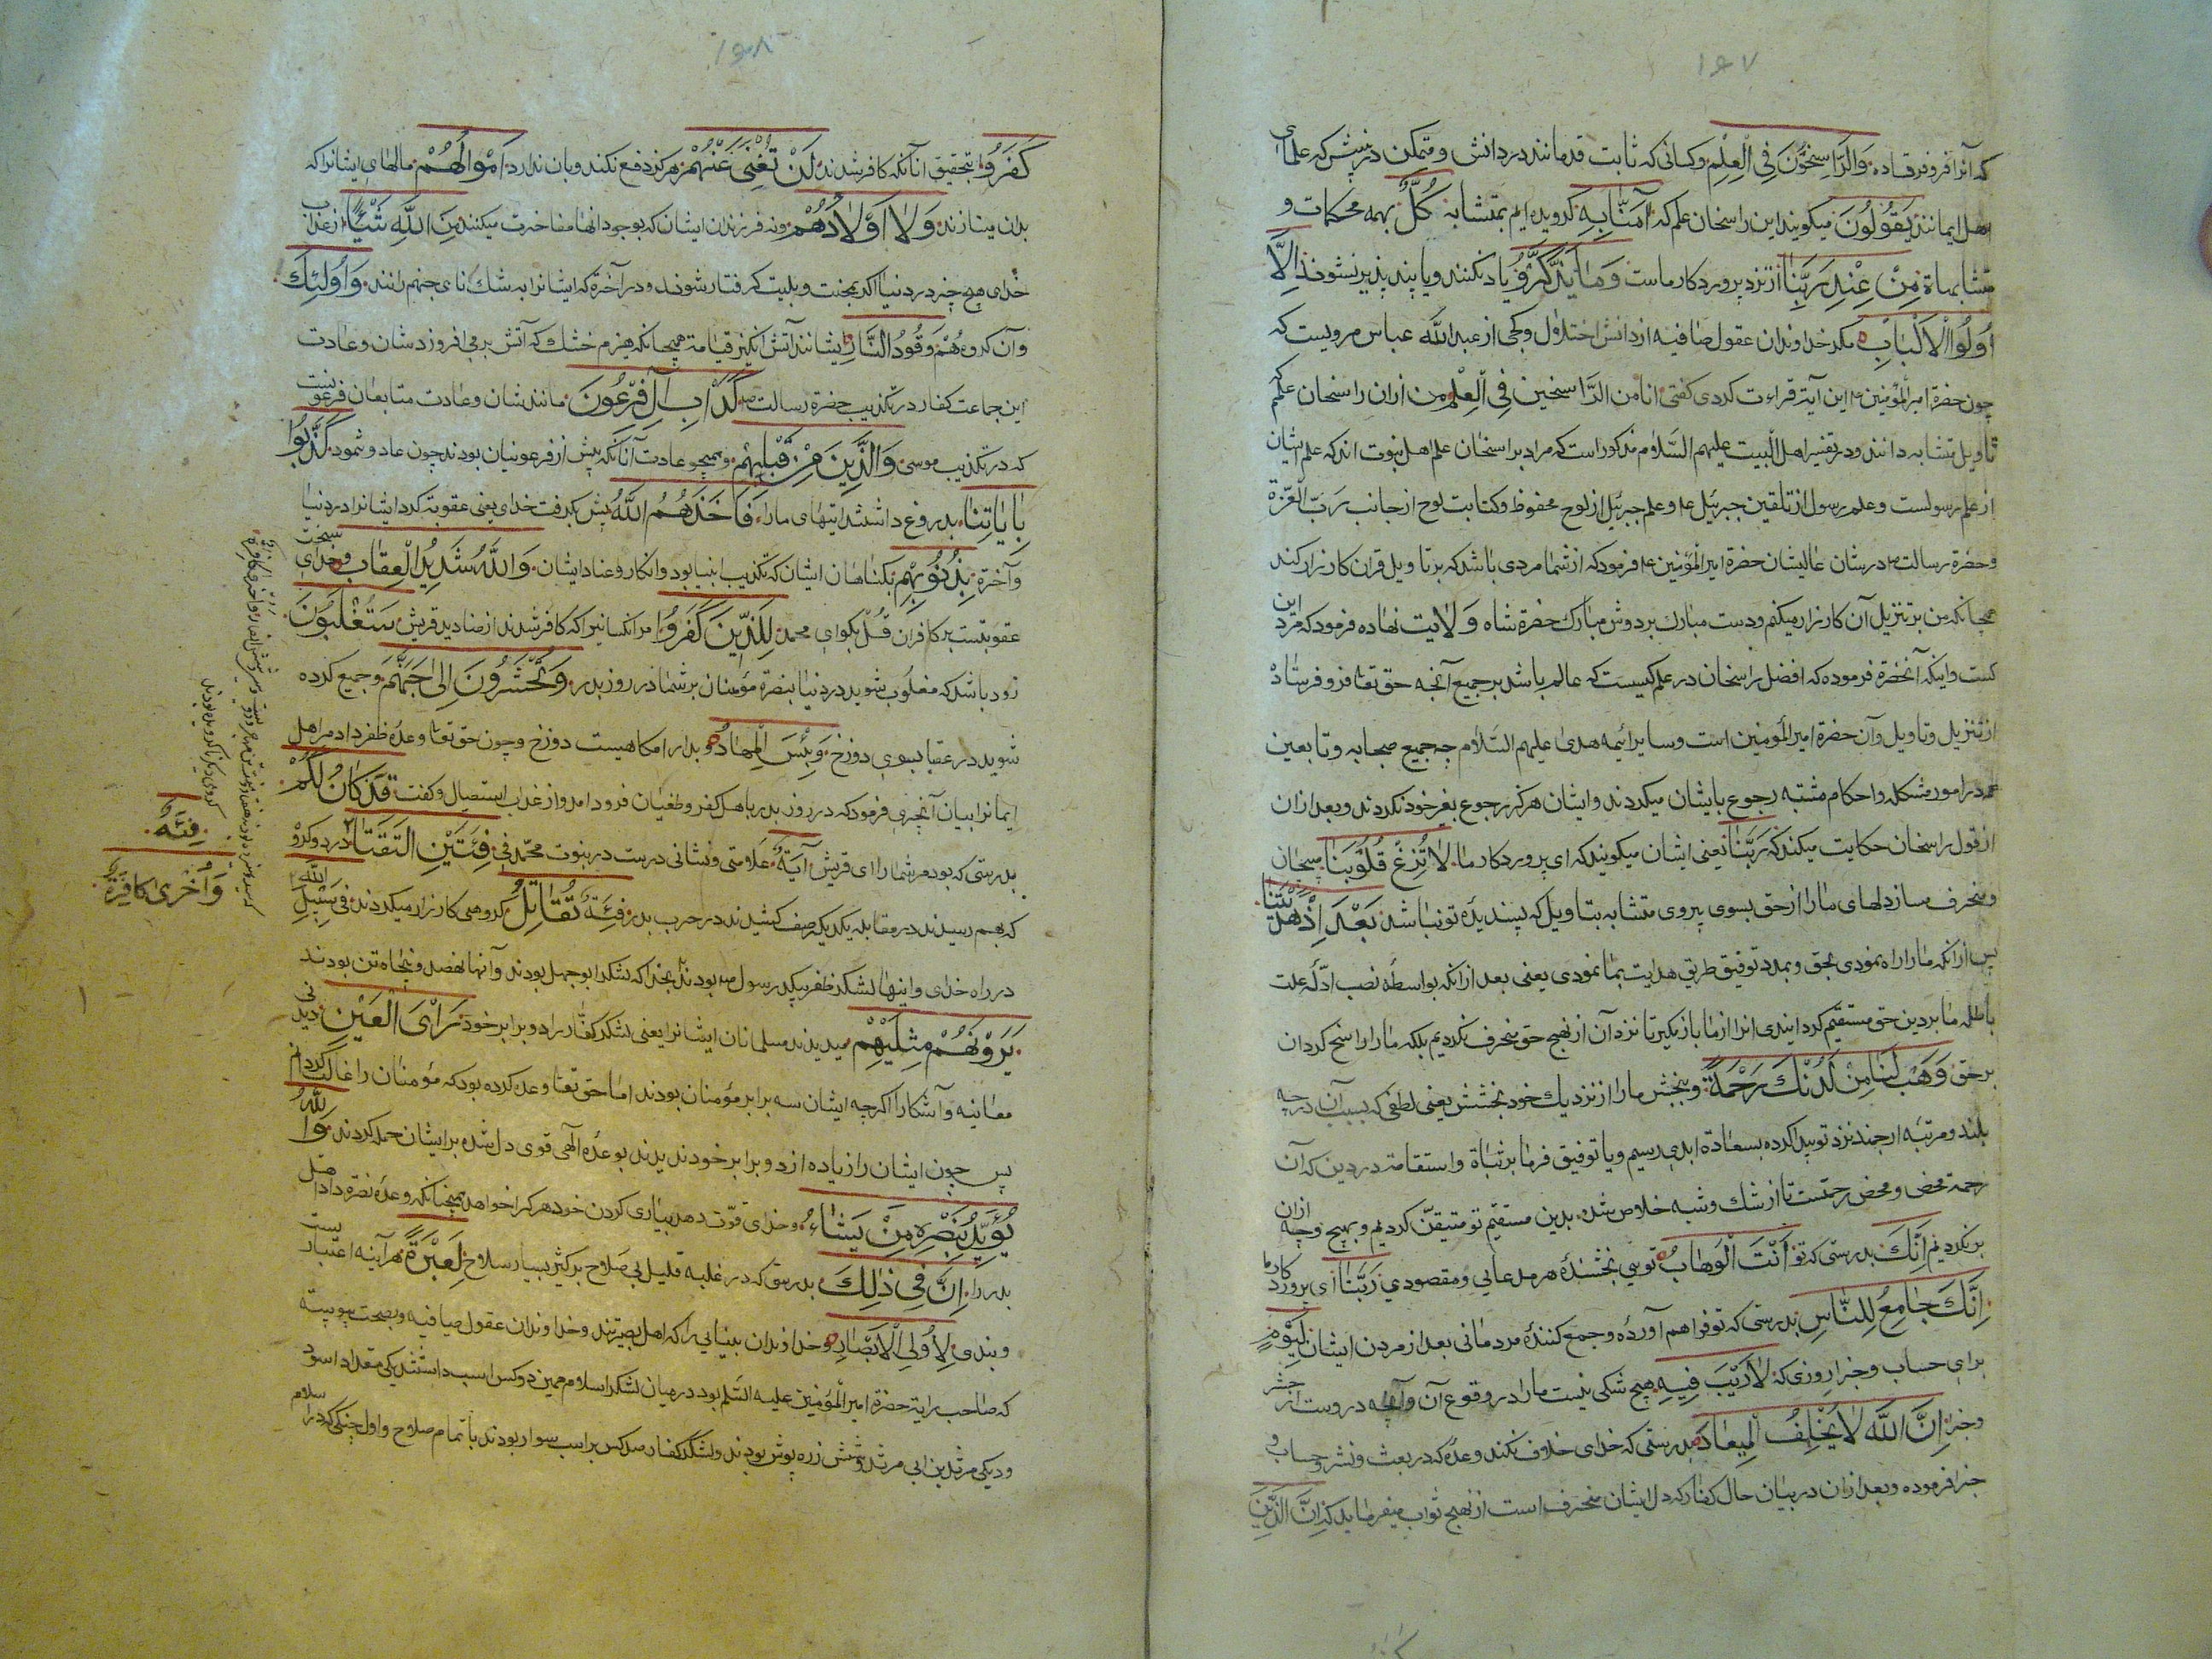 ۱۶۷
که آنرا فرو فرستاده وَالرَّاسِخُونَ فِی الْعِلْمِ وکسانی که ثابت قدمانند در دانش و متمکن در بینش که علمای
اهل ایمانند یَقُولُونَ میگویند این راسخان علم که آمَنَّا بِهِ کرویده ایم بمتشابه کُلٌّ بهمه محکمات و
متشابهاة مِنْ عِنْدِ رَبِّنَا از نزد پروردکار ماست وَمَا یَذَّکَّرُ و یاد نکنند و یا پند پذیر نشوند اِلَّا
اُولُوا الْاَلْبَابِ مکر خداوندان عقول صافیه از دانش اختلاول وکجی از عبد الله عباس مرویست که
چون حضرة امیر المؤمنین ع این آیة قراءت کردی کفتی انا من الرَّاسخین فِی الْعِلْمِ من ازان راسخان علمم که
تاویل متشابه دانند ودر تفسیر اهل البیت علیهم السَّلام مذکور است که مراد براسخان علم اهل نبوت اند که علم ایشان
از علم رسولست وعلم رسول از تلقین جبرئیل ع وعلم جبرئیل از لوح محفوظ وکتابت لوح از جانب رَبّ الْعِزّة
وحضرة رسالت ص در شان عالیشان حضرة امیر المؤمنین ع فرمود که از شما مردی باشد که بر تاویل قران کارزار کند
همچنانکه من بر تنزیل آن کارزار میکنم ودست مبارک بر دوش مبارک حضرة شاه وَلایت نهاده فرمود که این مرد
کست واینکه آنحضرة فرموده که افضل راسخان در علم کیست که عالم باشد بر جمیع آنچه حق تعا فرو فرستاد
از تنزیل وتاویل وآن حضرة امیر المؤمنین است وسایر ائیمه هدی علیهم السَّلام چه جمیع صحابه وتابعین
همه در امور مشکله واحکام مشتبه رجوع بایشان میکردند وایشان هرکز رجوع بغیر خود نکردند وبعد ازان
از قول راسخان حکایت میکند که رَبَّنَا یعنی ایشان میکویند که ای پروردکار ما لَا تُزِغْ قُلُوبَنَا مپیچان
ومنحرف مساز دلهای ما را از حق بسوی پیروی متشابه بتاویل که پسندیدۀ تو نباشد بَعْدَ اِذْ هَدَیْتَنَا
پس از انکه ما را راه نمودی بحق وبمدد توفیق طریق هدایت بما نمودی یعنی بعد از انکه بواسطه نصب ادلّه علت
باطله ما بر دین حق مستقیم کردانیدی انرا از ما باز نکیر تا نزد آن از نهج حق منحرف نکردیم بلکه ما را راسخ کردان
بر حق وَهَبْ لَنَا مِنْ لَدُنْکَ رَحْمَةً وببخش ما را از نزدیک خود بخشش یعنی لطفی که بسبب آن درجه
بلند ومرتبه ارجمند نزد تو پیدا کرده بسعادة ابدی رسیم ویا توفیق فرما بر ثباة واستقامة در دین که آن
رحمة محض ومحض رحمتست تا از شک وشبه خلاص شده بدین مستقیم تو متیقن کردیم وبهیچ وجه ازان
برنکردیم اِنَّکَ بدرستی که تو اَنْتَ الْوَهَّابُ تویی بخشندۀ هر مدعایی ومقصودی رَبَّنَا ای پروردکار ما
اِنَّکَ جَامِعُ لِلنَّاسِ بدرستی که تو فراهم آورده وجمع کننده مردمانی بعد از مردن ایشان لِیَوْمٍ
برای حساب وجزا روزی که لَا رَیْبَ فِیهِ هیچ شکی نیست مارا در وقوع آن وآنچه دروست از حشر
وجزا اِنَّ اللّٰهَ لَا یُخْلِفُ الْمِیعَادَ بدرستی که خدای خلاف نکند وعدۀ که در بعث ونشر وحساب و
جزا فرموده وبعد ازان در بیان حال کفار که دل ایشان منحرف است از نهج ثواب میفرماید که اِنَّ الَّذِینَ
کَفَرُوا بتحقیق آنانکه کافر شدند لَنْ تُغْنِیَ عَنْهُمْ هرکز دفع نکند وبان ندارد اَمْوَالُهُمْ مالهای ایشانرا که
بدان مینازند وَلَا اَوْلَادُهُمْ ونه فرزندان ایشان که بوجود انها مفاخرت میکنند مِنَ اللّٰهِ شَیْئًا از عذاب
خدای هیچ چیز در دنیا اکر بمحنت وبلیت کرفتار شوند ودر آخرة که ایشانرا به شک انای جهنم رانند وَاُولٰئِکَ
وآن کروه هُمْ وَقُودُ النَّارِ ایشانند آتش انکیز قیامة همچنانکه هیزم خشک که آتش بر می افروزد شان وعادت
این جماعت کفار در تکذیب حضرة رسالت ص کَدَأْبِ آلِ فِرْعَوْنَ مانند شان وعادت متابعان فرعونست
که در تکذیب موسی وَالَّذِینَ مِنْ قَبْلِهِمْ وهمچو عادت آنانکه پیش از فرعونیان بودند چون عاد وثمود کَذَّبُوا
بِاٰیَاتِنَا بدروغ داشتند ایتهای ما را فَاَخَذَهُمُ اللّٰهُ پس بکرفت خدای یعنی عقوبة کرد ایشانرا در دنیا
وآخرة بِذُنُوبِهِمْ بکناهان ایشان که تکذیب انبیا بود وانکار وعناد ایشان وَاللّٰهُ شَدِیدُ الْعِقَابِ وخدای سخت
عقوبتست بر کافران قُلْ بکوای محمد لِلَّذِینَ کَفَرُوا مر انکسانیرا که کافر شدند از صنادید قریش سَتُغْلَبُونَ
زود باشد که مغلوب شوید در دنیا بنصرة مؤمنان بر شما در روز بدر وَتُحْشَرُونَ اِلٰی جَهَنَّمَ وجمع کرده
شوید در عقبا بسوی دوزخ وَبِئْسَ الْمِهَادُ وبد ارامکاهیست دوزخ وچون حق تعا وعدۀ ظفر داد مر اهل
ایمانرا بیان آنچیزی فرمود که در روز بدر باهل کفر وطغیان فرود امد واز عذاب استصال وکفت قَدْ کَانَ لَکُمْ
بدرستی که بود مر شما را ای قریش آیَةٌ علامتی ونشانی درست در نبوت محمّد فِی فِئَتَیْنِ الْتَقَتَا در دو کروه
که بهم رسیدند در مقابله یکدیکر صف کشیدند در حرب بدر فِئَةٌ تُقَاتِلُ کروهی کارزار میکردند فِی سَبِیلِ اللّٰهِ
در راه خدای واینها لشکر ظفر پیکر رسول ص بودند که لشکر ابو جهل بودند وآنها نهصد وپنجاه تن بودند
یَرَوْنَهُمْ مِثْلَیْهِمْ میدیدند مسلمانان ایشانرا یعنی لشکر کفّار را دو برابر خود رَأْیَ الْعَیْنِ دیدنی
معاینه وآشکارا اکرچه ایشان سه برابر مؤمنان بودند اما حق تعا وعده کرده بود که مؤمنان را غالب کردانم
پس چون ایشان را زیاده از دو برابر خود ندیدند بوعدۀ الٓهی قوی دل شده بر ایشان حمله کردند وَاللّٰهُ
یُؤَیِّدُ بِنَصْرِهِ مَنْ یَشَاءُ وخدای قوّت دهد بیاری کردن خود هرکرا خواهد همچنانکه وعدۀ نصرة داد اهل
بدر را اِنَّ فِی ذٰلِکَ بدرستی که در غلبه قلیل بی صلاح بر کثیر بسیار سلاح لَعِبْرَةً هرآینه اعتباریست
وپندی لِاُولِی الْاَبْصَارِ خداوندان بینایی را که اهل بصیرتند وخداوندان عقول صافیه وبصحت پیوسته
که صاحب رایة حضرة امیر المؤمنین علیه السَّلم بود در میان لشکر اسلام همین دو کس اسب داشتند یکی مقداد اسود
ودیکی مرثد بن ابی مرثد وشش زره پوش بودند ولشکر کفار صد کس بر اسب سوار بودند با تمام صلاح واول جنکی که در اسلام
فِئَةٌ
وَاُخْرٰی کَافِرَةٌ